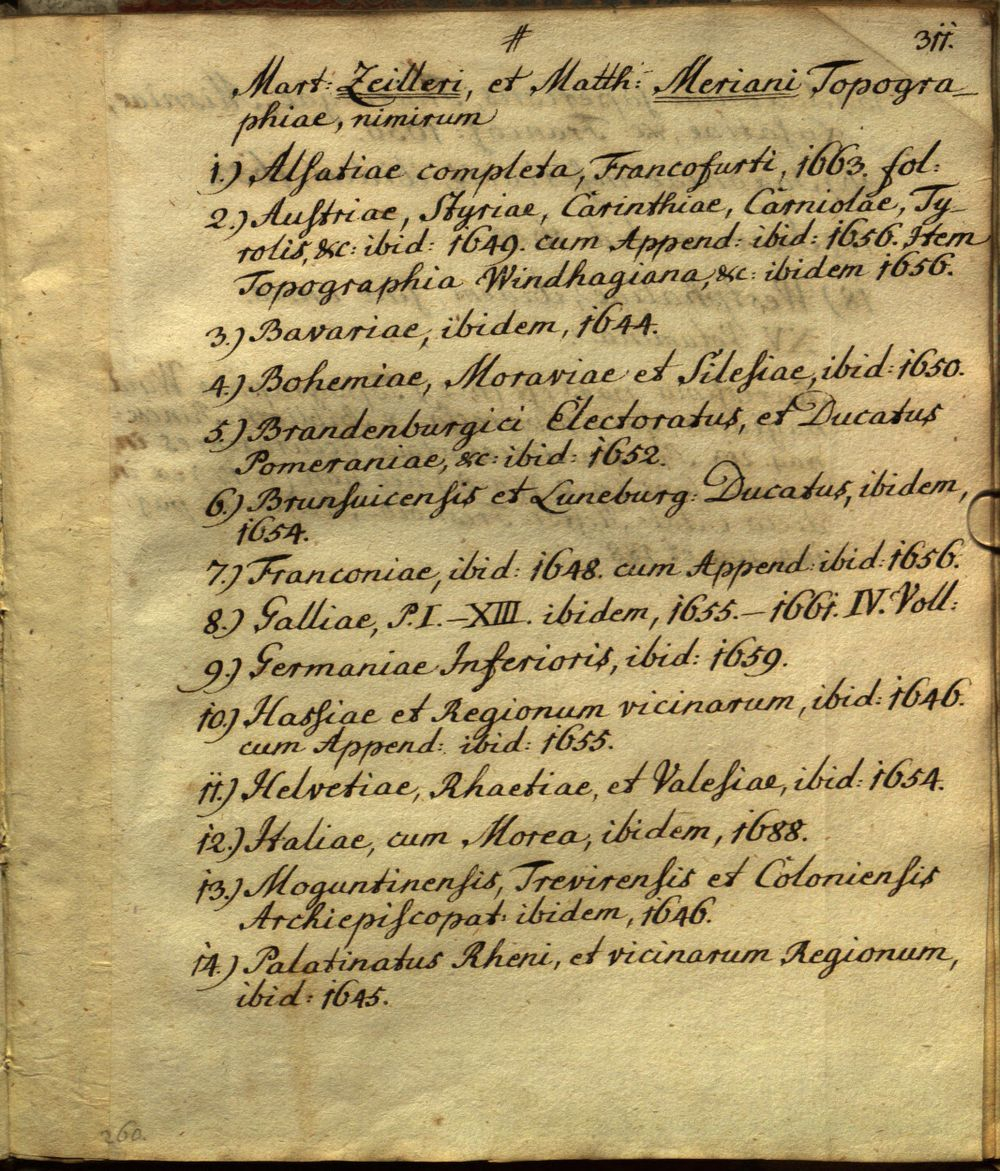 #
311.
Mart: Zeilleri, et Matth: Meriani Topogra-
phiae, nimirum
1.) Alsatiae completa, Francofurti, 1663. fol:
2.) Austriae, Styriae, Carinthiae, Carniolae, Ty-
rolis, &c: ibid: 1649. cum Append: ibid: 1656. Item
Topographia Windhagiana, &c: ibidem 1656.
3.) Bavariae, ibidem, 1644.
4.) Bohemiae, Moraviae et Silesiae, ibid: 1650.
5.) Brandenburgici Electoratus, et Ducatus
Pomeraniae, &c: ibid: 1652.
6.) Brunsuicensis et Luneburg: Ducatus, ibidem,
1654.
7.) Franconiae, ibid: 1648. cum Append: ibid: 1656.
8.) Galliae, P. I. – XIII. ibidem, 1655. – 1661. IV. Voll:
9.) Germaniae Inferioris, ibid: 1659.
10.) Hassiae et Regionum vicinarum, ibid: 1646.
cum Append: ibid: 1655.
11.) Helvetiae, Rhaetiae, et Valesiae, ibid: 1654.
12.) Italiae, cum Morea, ibidem, 1688.
13.) Moguntinensis, Trevirensis et Coloniensis
Archiepiscopat: ibidem, 1646.
14.) Palatinatus Rheni, et vicinarum Regionum,
ibid: 1645.
260.